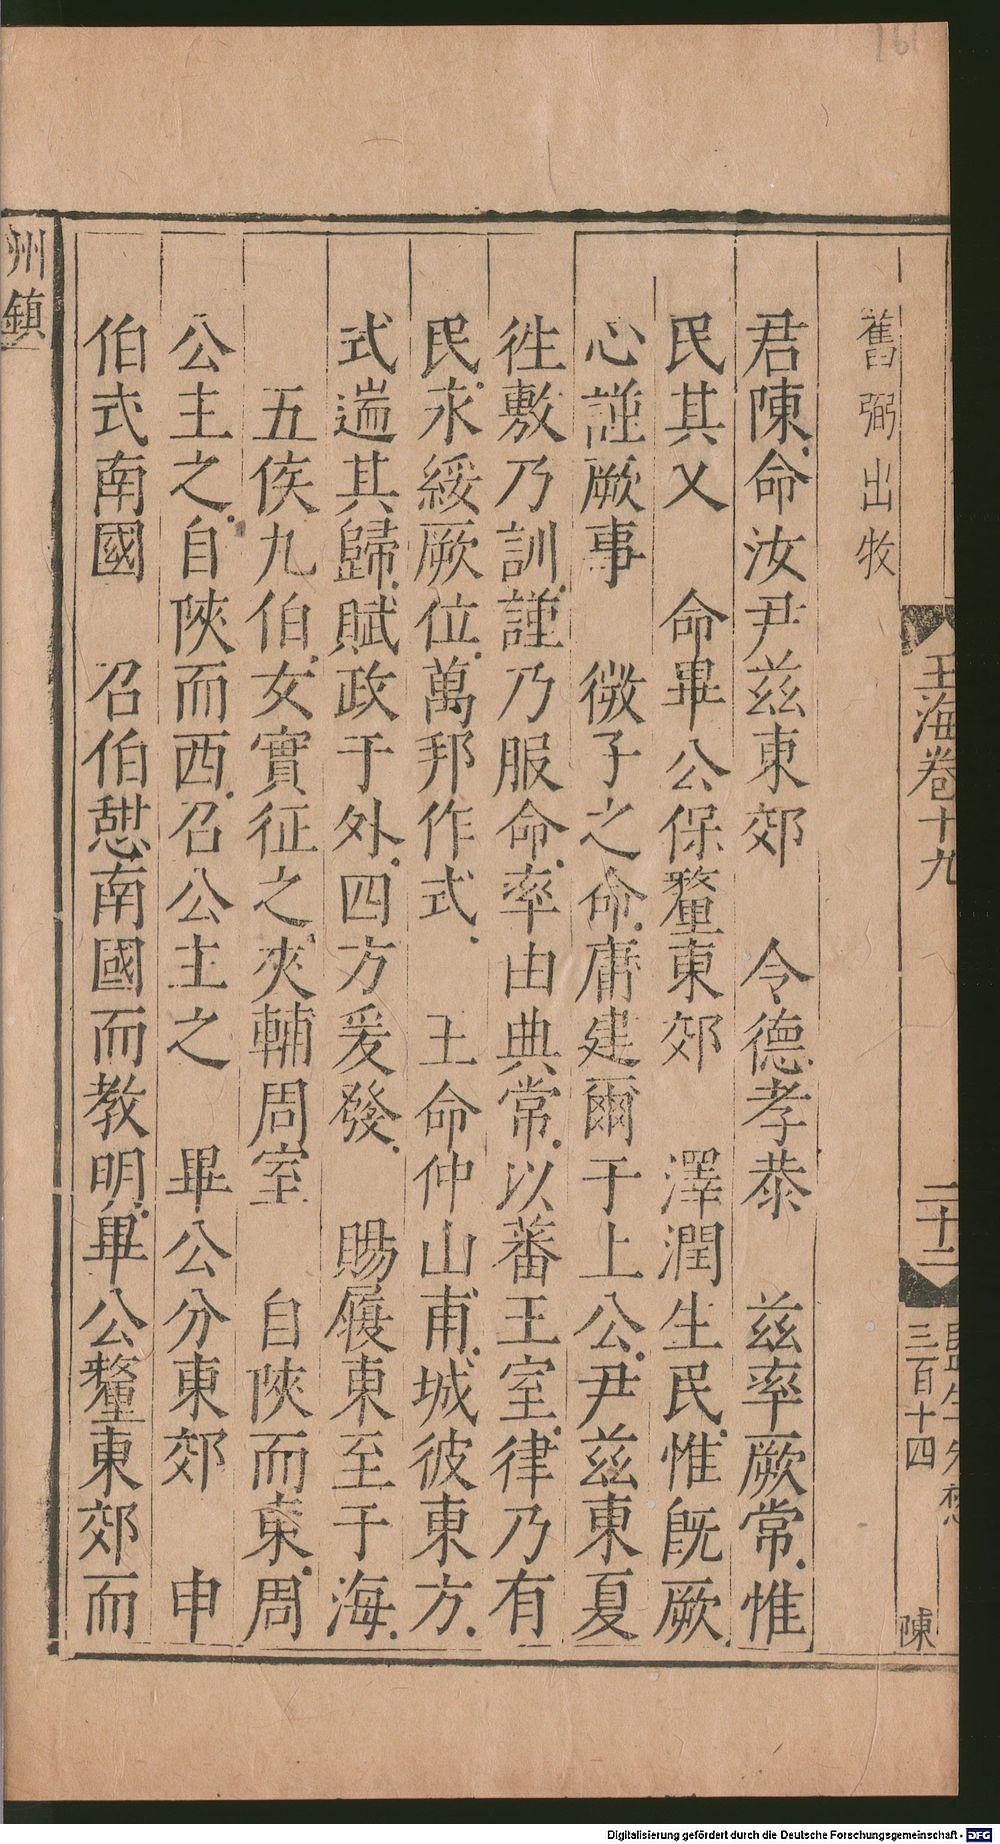 161
舊弼出牧
君陳命汝尹兹東郊　令德孝恭　兹率厥常惟
民其乂　命畢公保釐東郊　澤潤生民惟旣厥
心謹厥事　微子之命庸建爾于上公尹兹東夏
徃敷乃訓謹乃服命率由典常以蕃王室律乃有
民永綏厥位萬邦作式　王命仲山甫城彼東方
式遄其歸賦政于外四方爰發　賜履東至于海
五侯九伯女實征之夾輔周室　自陝而東周
公主之自陝而西召公主之　畢公分東郊　申
伯式南國　召伯憩南國而教明畢公釐東郊而
玉海卷十九
二十二
三百十四
陳
州鎮
Digitalisierung gefördert durch die Deutsche Forschungsgemeinschaft - DFG